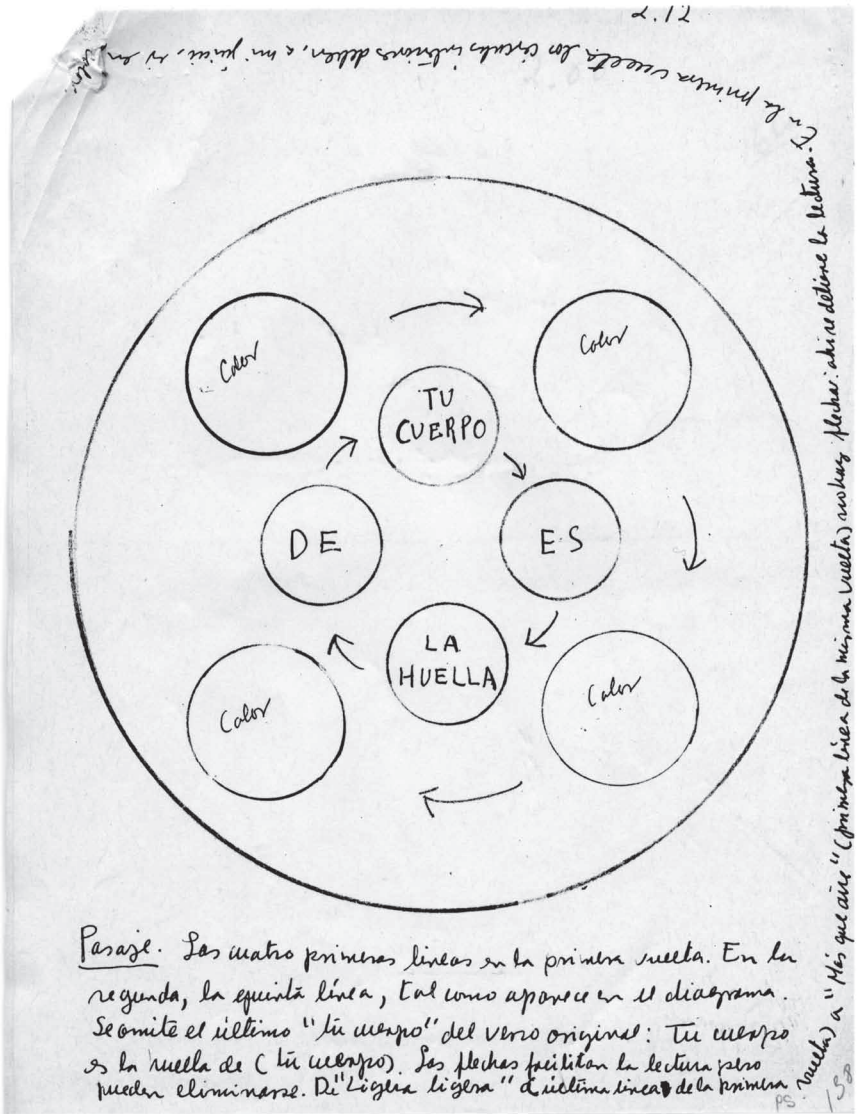 TU
CUERPO
ES
LA
HUELLA
DE
Color
Color
Color
Color
Pasaje. Las cuatro primeras líneas en la primera vuelta. En la
segunda, la quinta línea, tal como aparece en el diagrama.
Se omite el último "tu cuerpo" del verso original: Tu cuerpo
es la huella de (tu cuerpo). Las flechas facilitan la lectura pero
pueden eliminarse. De "Ligera ligera" (última línea de la primera
vuelta) a "Más que aire" (primera línea de la misma vuelta) no hay flecha: ahí se detiene la lectura.
En la primera vuelta los círculos interiores deben, a mi juicio, ir en
PS
158